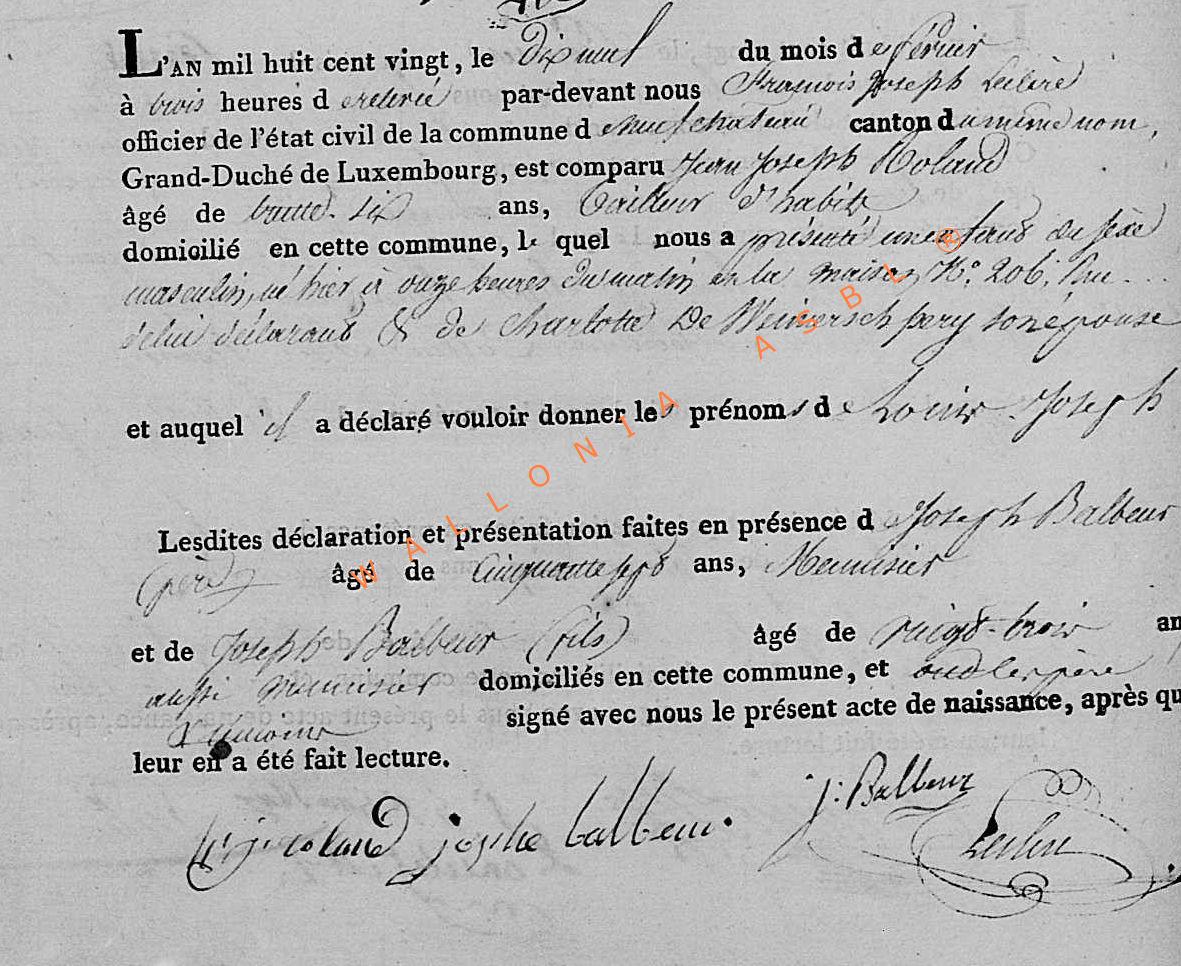 L'AN mil huit cent vingt, le dix neuf du mois de février
à trois heures de relevée par-devant nous François Joseph Leclère
officier de l'état civil de la commune de Neufchateau canton du même nom,
Grand-Duché de Luxembourg, est comparu Jean Joseph Roland
âgé de trente-six ans, Tailleur d'habits
domicilié en cette commune, le quel nous a présenté un enfant du sexe
masculin, né hier à onze heures du matin en la maison N.o 206, rue
de lui déclarant & de Charlotte De Weimerschpery son épouse
et auquel il a déclaré vouloir donner les prénoms de Louis Joseph
Lesdites déclaration et présentation faites en présence de Joseph Balbeur
(père) âgé de cinquante sept ans, Menuisier
et de Joseph Balbeur (fils) âgé de vingt-trois an
aussi menuisier domiciliés en cette commune, et ont le père
& témoins signé avec nous le présent acte de naissance, après qu
leur en a été fait lecture.
j. j. roland josephe balbeur J: Balbeur Leclere
WALLONIA ASBL ®